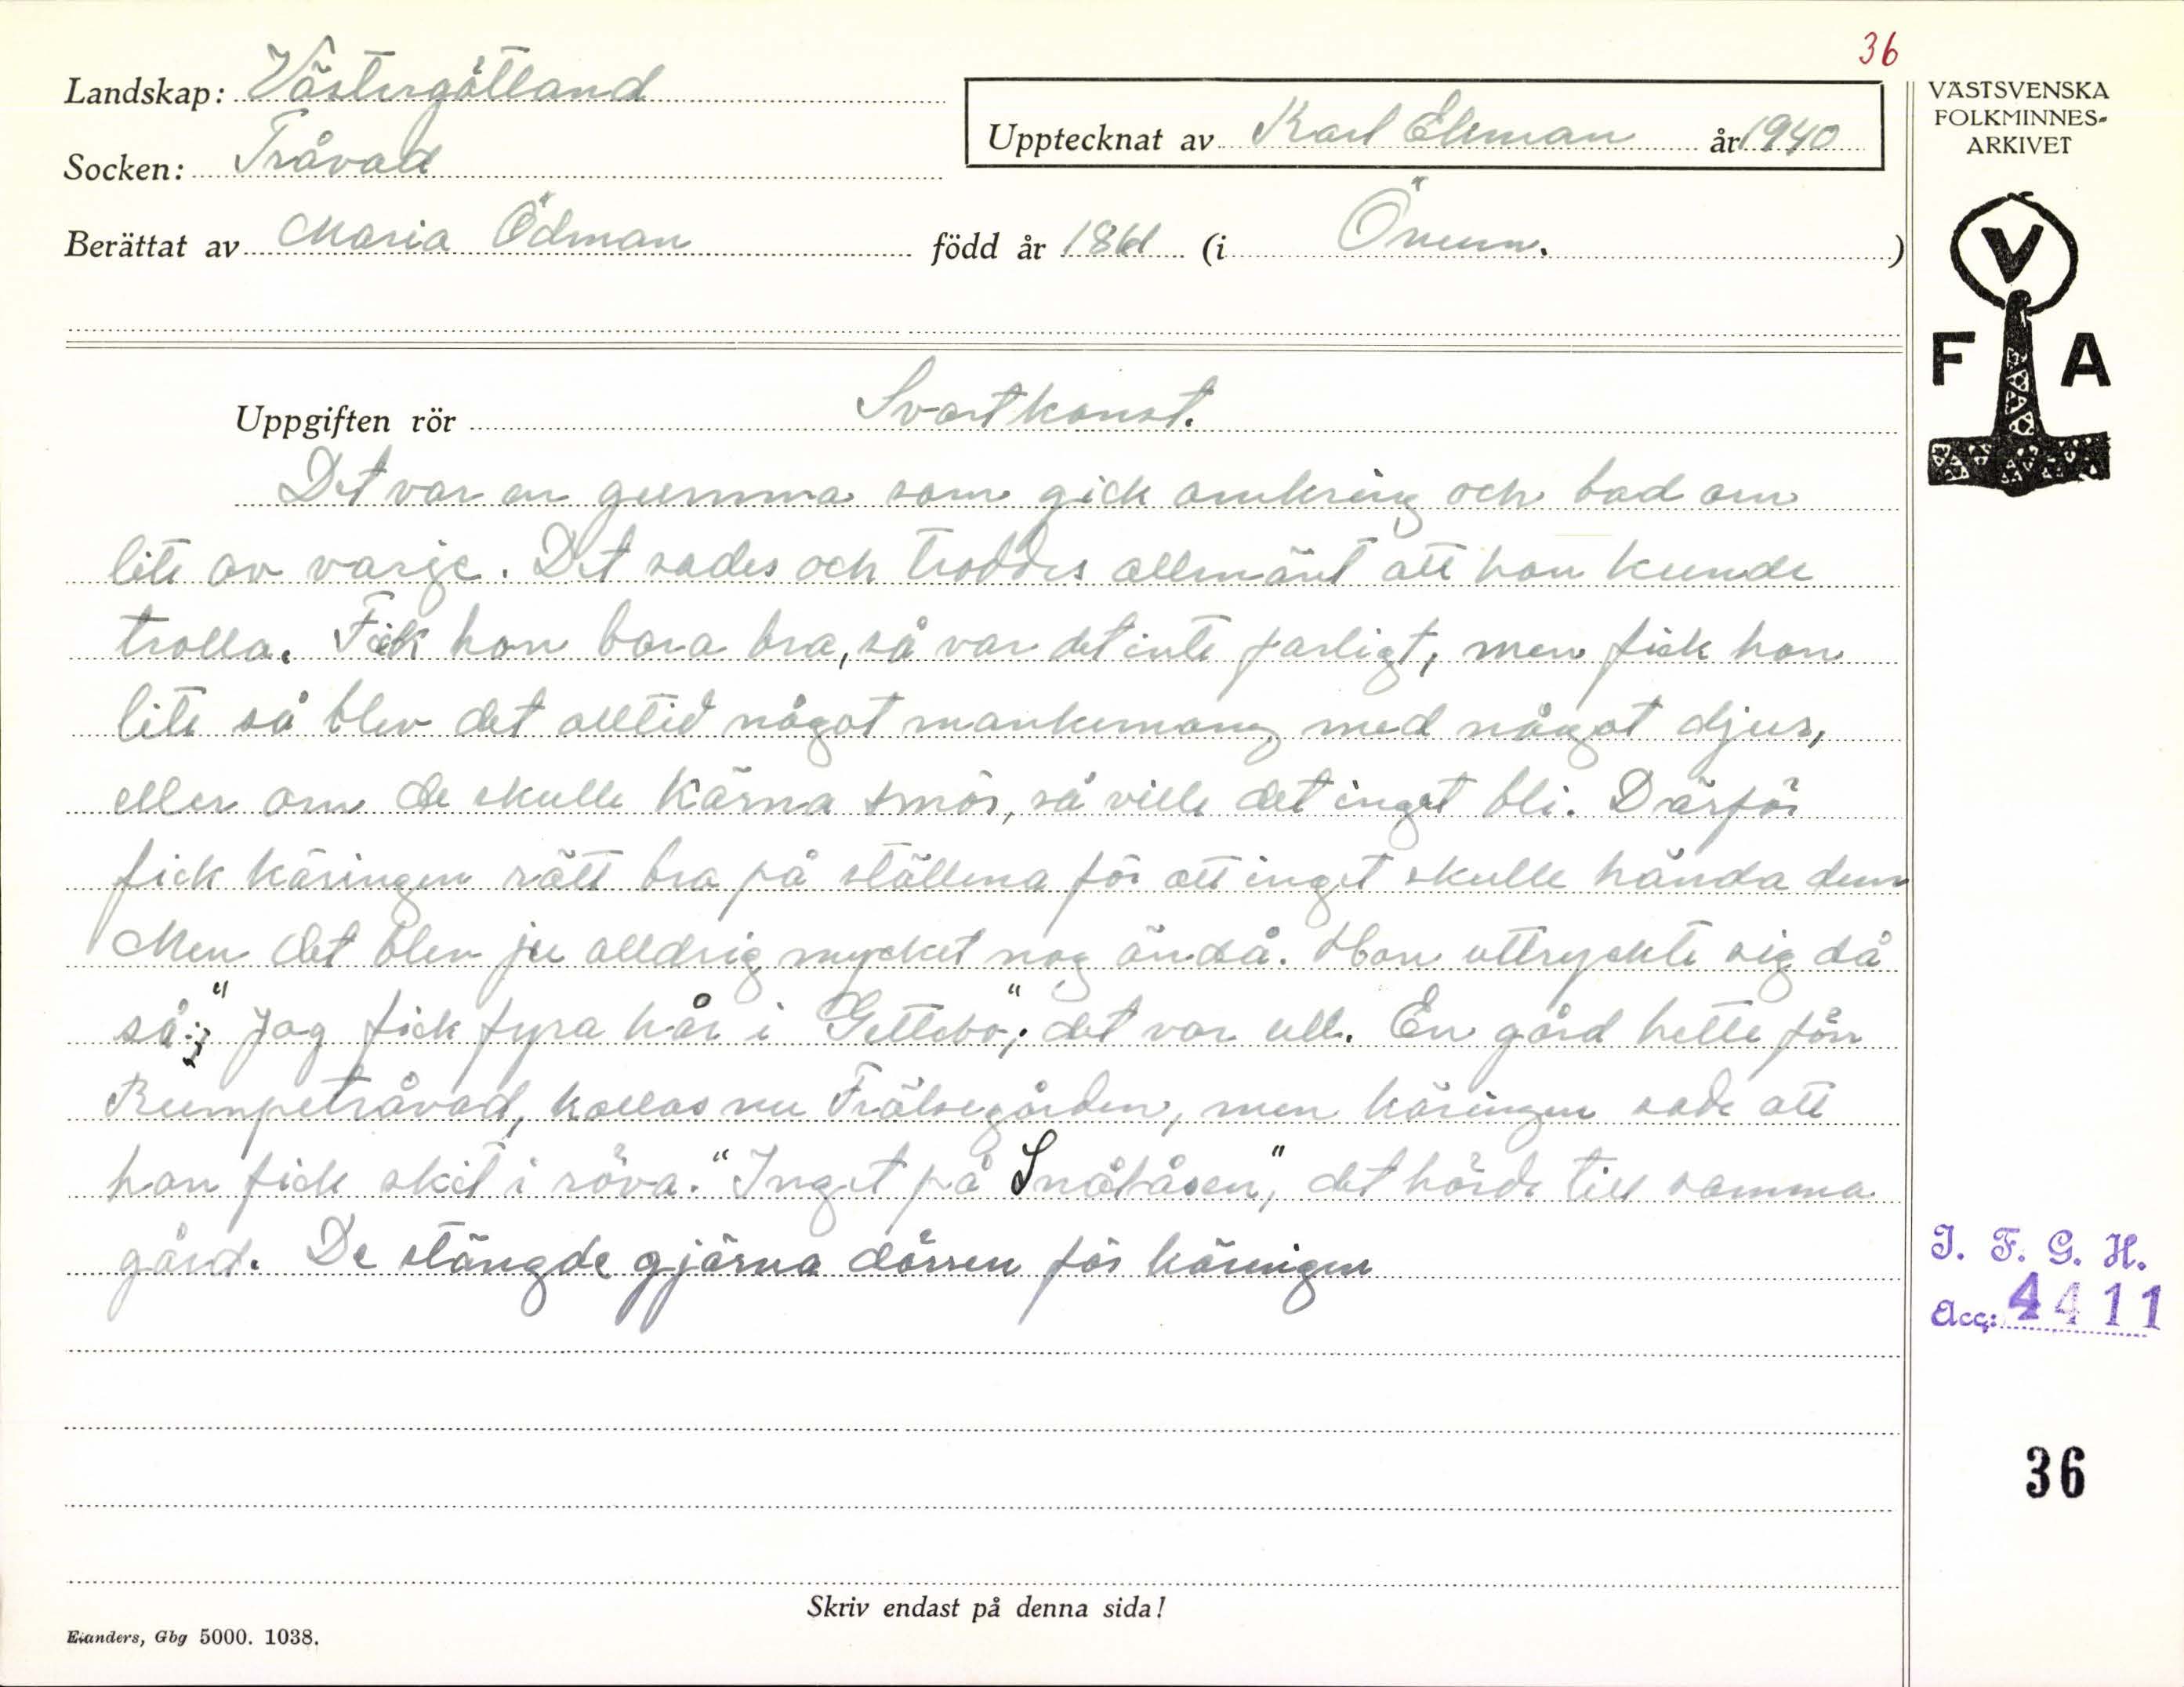 36
Landskap: Västergötland
Socken: Tråvad
Upptecknat av Karl Ekman år 1940
Berättat av Maria Ödman född år 1861 (i Önum.)
VÄSTSVENSKA
FOLKMINNES-
ARKIVET
V
F A
Uppgiften rör Svartkonst.
Det var en gumma som gick omkring och bad om
lite av varje. Det sades och troddes allmänt att hon kunde
trolla. Fick hon bara bra, så var det inte farligt, men fick hon
lite så blev det alltid något mankemang med något djur,
eller om de skulle kärna smör, så ville det inget bli. Därför
fick käringen rätt bra på ställena för att inget skulle hända dem
Men det blev ju alldrig mycket nog ändå. Hon uttryckte sig då
så: "Jag fick fyra hår i Gettebo"; det var ull. En gård hette förr
Rumpetråvad, kallas nu Frälsegården, men käringen sade att
hon fick skit i röva. "Inget på Snålåsen", det hörde till samma
gård. De stängde gjärna dörren för käringen
I. F. G. H.
Acc: 4411
36
Skriv endast på denna sida!
Elanders, Gbg 5000. 1038.